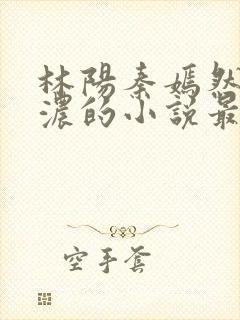 林陽秦嫣然
濃的小說最
空手套